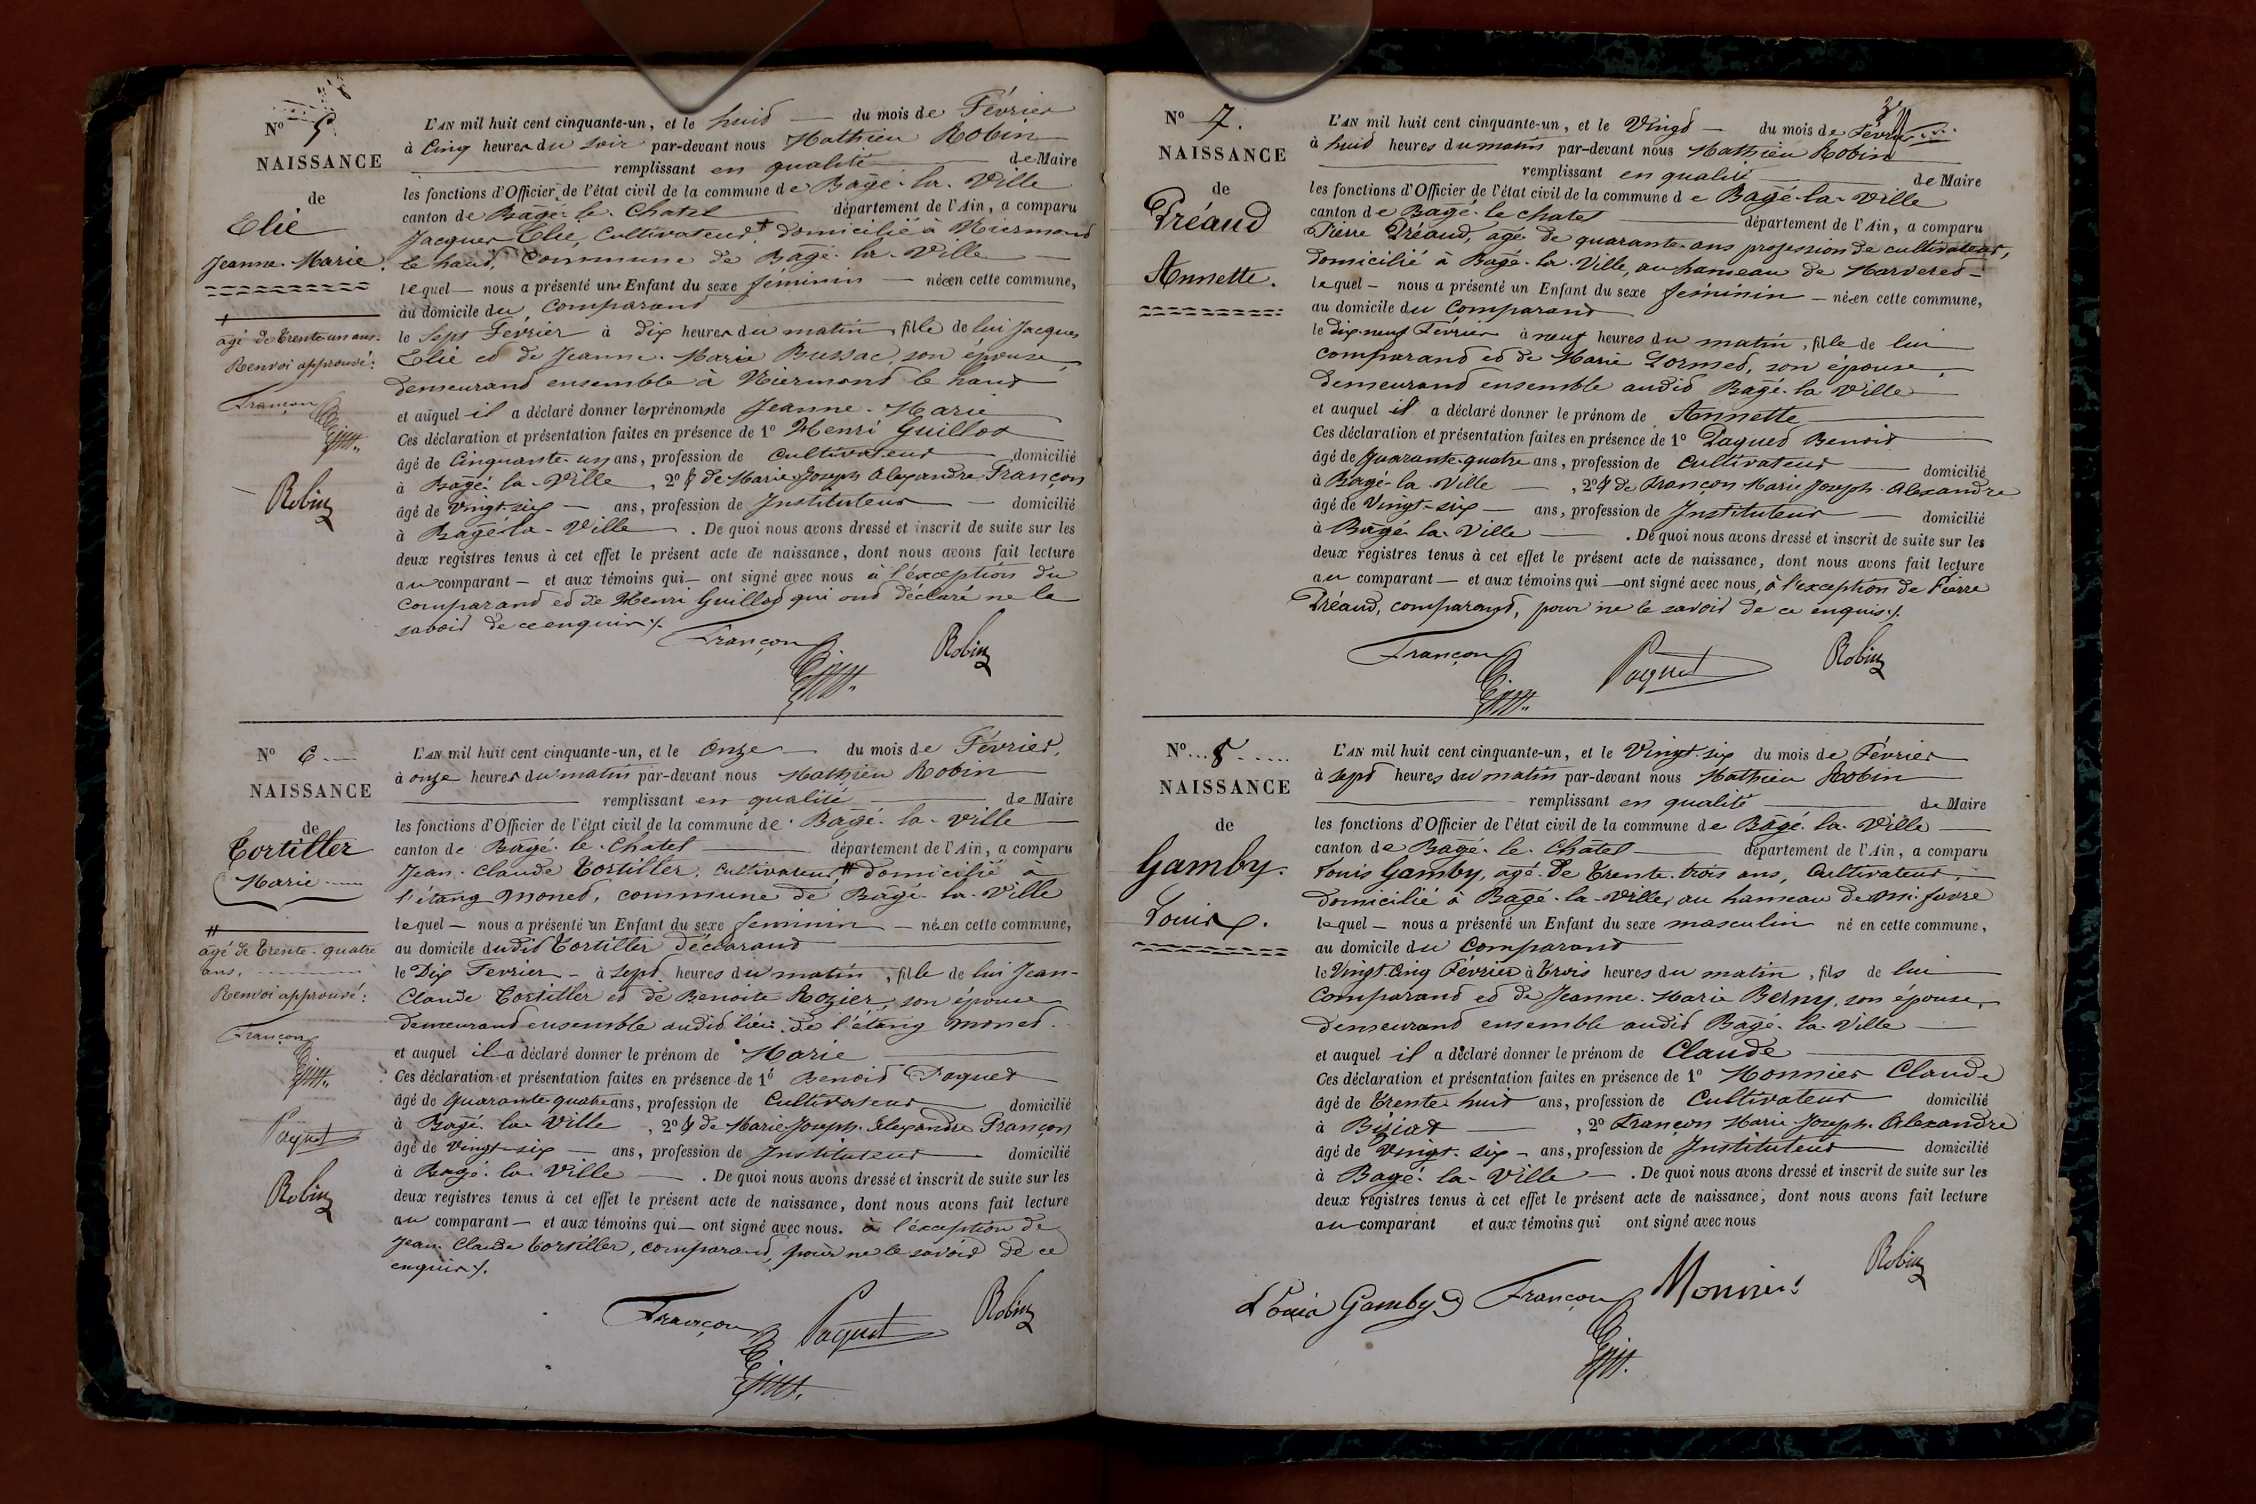 Nº 5
NAISSANCE
de
Elie
Jeanne-Marie.
âgé de Trente-un ans.
Renvoi approuvé:
Françon
Robin
L'AN mil huit cent cinquante-un, et le huit du mois de Février
à Cinq heures du soir par-devant nous Mathieu Robin
remplissant en qualité de Maire
les fonctions d'Officier de l'état civil de la commune de Bagé-la-Ville
canton de Bagé-le-Chatel département de l'Ain, a comparu
Jacques Elie, Cultivateur, domicilié à
le haut, Commune de Bagé-la-Ville
lequel nous a présenté un Enfant du sexe féminin née en cette commune,
au domicile du Comparant
le Sept Fevrier à dix heures du matin, fille de lui Jacques
Elie et de Jeanne-Marie Bussac, son épouse
demeurant ensemble à le haut
et auquel il a déclaré donner les prénoms de Jeanne-Marie
Ces déclaration et présentation faites en présence de 1º Henri Guillot
âgé de Cinquante-un ans, profession de Cultivateur domicilié
à Bagé-la-Ville, 2º & de Marie Joseph Alexandre Françon
âgé de Vingt-six ans, profession de Instituteur domicilié
à Bagé-la-Ville. De quoi nous avons dressé et inscrit de suite sur les
deux registres tenus à cet effet le présent acte de naissance, dont nous avons fait lecture
au comparant et aux témoins qui ont signé avec nous à l'exception du
comparant et de Henri Guillot qui ont déclaré ne le
savoir de ce enquis./.
Françon Robin
Nº 6
NAISSANCE
de
Tortiller
Marie
âgé de Trente-quatre
ans.
Renvoi approuvé:
Françon
Paquet
Robin
L'AN mil huit cent cinquante-un, et le Onze du mois de Février,
à onze heures du matin par-devant nous Mathieu Robin
remplissant en qualité de Maire
les fonctions d'Officier de l'état civil de la commune de Bagé-la-Ville
canton de Bagé-le-Chatel département de l'Ain, a comparu
Jean-Claude Tortiller, Cultivateur, domicilié à
l'étang monet, commune de Bagé-la-Ville
lequel nous a présenté un Enfant du sexe feminin née en cette commune,
au domicile dudit Tortiller déclarant
le Dix Fevrier à sept heures du matin, fille de lui Jean-
Claude Tortiller et de Benoite Rozier, son épouse
demeurant ensemble audit lieu de l'étang monet.
et auquel il a déclaré donner le prénom de Marie
Ces déclaration et présentation faites en présence de 1º Benoit Paquet
âgé de Quarante-quatre ans, profession de Cultivateur domicilié
à Bagé-la-Ville, 2º & de Marie Joseph-Alexandre Françon
âgé de Vingt-six ans, profession de Instituteur domicilié
à Bagé-la-Ville. De quoi nous avons dressé et inscrit de suite sur les
deux registres tenus à cet effet le présent acte de naissance, dont nous avons fait lecture
au comparant et aux témoins qui ont signé avec nous. à l'éxception de
Jean-Claude Tortiller, comparant, pour ne le savoir de ce
enquis./.
Françon Paquet Robin
Nº 7.
NAISSANCE
de
Préaud
Annette.
L'AN mil huit cent cinquante-un, et le Vingt du mois de Février
à huit heures du matin par-devant nous Mathieu Robin
remplissant en qualité de Maire
les fonctions d'Officier de l'état civil de la commune de Bagé-la-Ville
canton de Bagé-le-chatel département de l'Ain, a comparu
Pierre Préaud, agé de quarante ans profession de cultivateur,
domicilié à Bagé-la-Ville, au hameau de
lequel nous a présenté un Enfant du sexe féminin née en cette commune,
au domicile du Comparant
le dix-neuf Février à neuf heures du matin, fille de lui
comparant et de Marie Lormet, son épouse,
demeurant ensemble audit Bagé-la-Ville
et auquel il a déclaré donner le prénom de Annette
Ces déclaration et présentation faites en présence de 1º Paquet Benoit
âgé de Quarante-quatre ans, profession de Cultivateur domicilié
à Bagé-la-Ville, 2º & de Françon Marie Joseph-Alexandre
âgé de Vingt-six ans, profession de Instituteur domicilié
à Bagé-la-Ville. De quoi nous avons dressé et inscrit de suite sur les
deux registres tenus à cet effet le présent acte de naissance, dont nous avons fait lecture
au comparant et aux témoins qui ont signé avec nous, à l'exception de Pierre
Préaud, comparant, pour ne le savoir de ce enquis./.
Françon Paquet Robin
Nº 8
NAISSANCE
de
Gamby.
Louis.
L'AN mil huit cent cinquante-un, et le Vingt-six du mois de Février
à sept heures du matin par-devant nous Mathieu Robin
remplissant en qualité de Maire
les fonctions d'Officier de l'état civil de la commune de Bagé-la-Ville
canton de Bagé-le-Chatel département de l'Ain, a comparu
Louis Gamby, agé de Trente-trois ans, Cultivateur,
domicilié à Bagé-la-Ville, au hameau de
lequel nous a présenté un Enfant du sexe masculin né en cette commune,
au domicile du Comparant
le Vingt-Cinq Février à trois heures du matin, fils de lui
Comparant et de Jeanne-Marie Berny, son épouse,
demeurant ensemble audit Bagé-la-Ville
et auquel il a déclaré donner le prénom de Claude
Ces déclaration et présentation faites en présence de 1º Monnier Claude
âgé de Trente-huit ans, profession de Cultivateur domicilié
à Biziat, 2º Françon Marie-Joseph-Alexandre
âgé de Vingt-six ans, profession de Instituteur domicilié
à Bagé-la-Ville. De quoi nous avons dressé et inscrit de suite sur les
deux registres tenus à cet effet le présent acte de naissance, dont nous avons fait lecture
au comparant et aux témoins qui ont signé avec nous
Louis Gamby Françon Monnier Robin